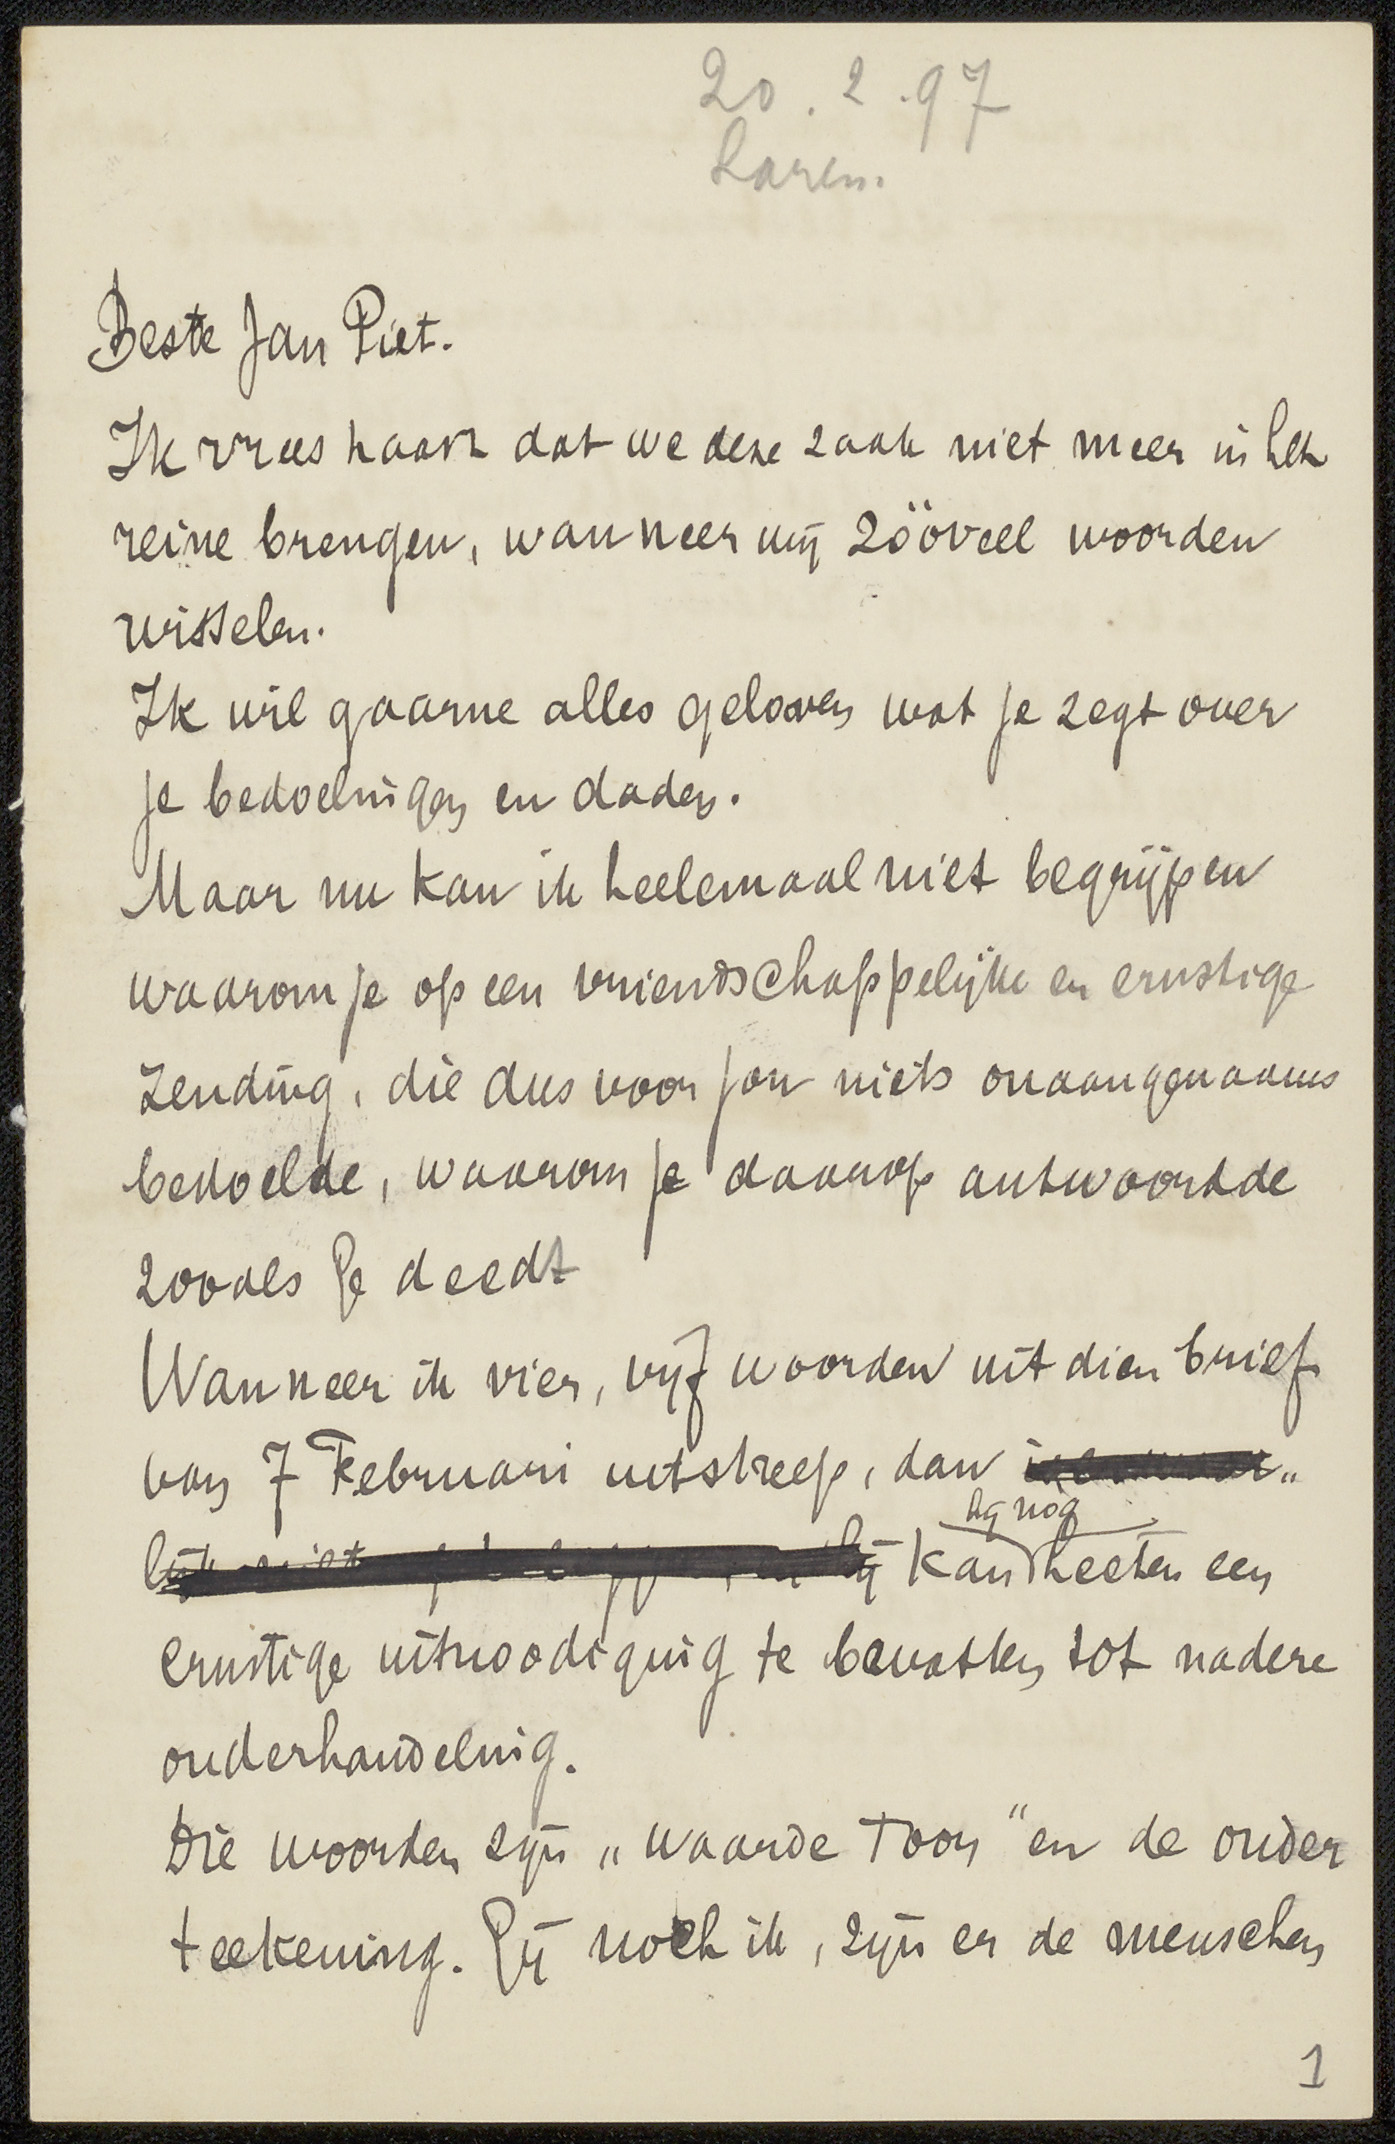 20.2.97
Laren.
Beste Jan Piet.
Ik vrees haast dat we deze zaak niet meer in het
reine brengen, wanneer wij zööveel woorden
wisselen.
Ik wil gaarne alles gelooven wat je zegt over
je bedoelingen en daden.
Maar nu kan ik heelemaal niet begrijpen
waarom je op een vriendschappelijke en ernstige
zending, die dus voor jou niets onaangenaams
bedoelde, waarom je daarop antwoordde
zooals je deedt
Wanneer ik vier, vijf woorden uit dien brief
van 7 Februari uitstreep, dan
hij nog
kan heeten een
ernstige uitnoodiging te bevatten tot nadere
onderhandeling.
Die woorden zijn „waarde Toon" en de onder
teekening. Gij noch ik, zijn er de menschen
1